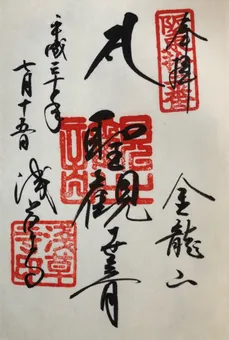 奉拝
金龍山
聖観世音
平成三十年
七月十五日
浅草寺
浅草寺印